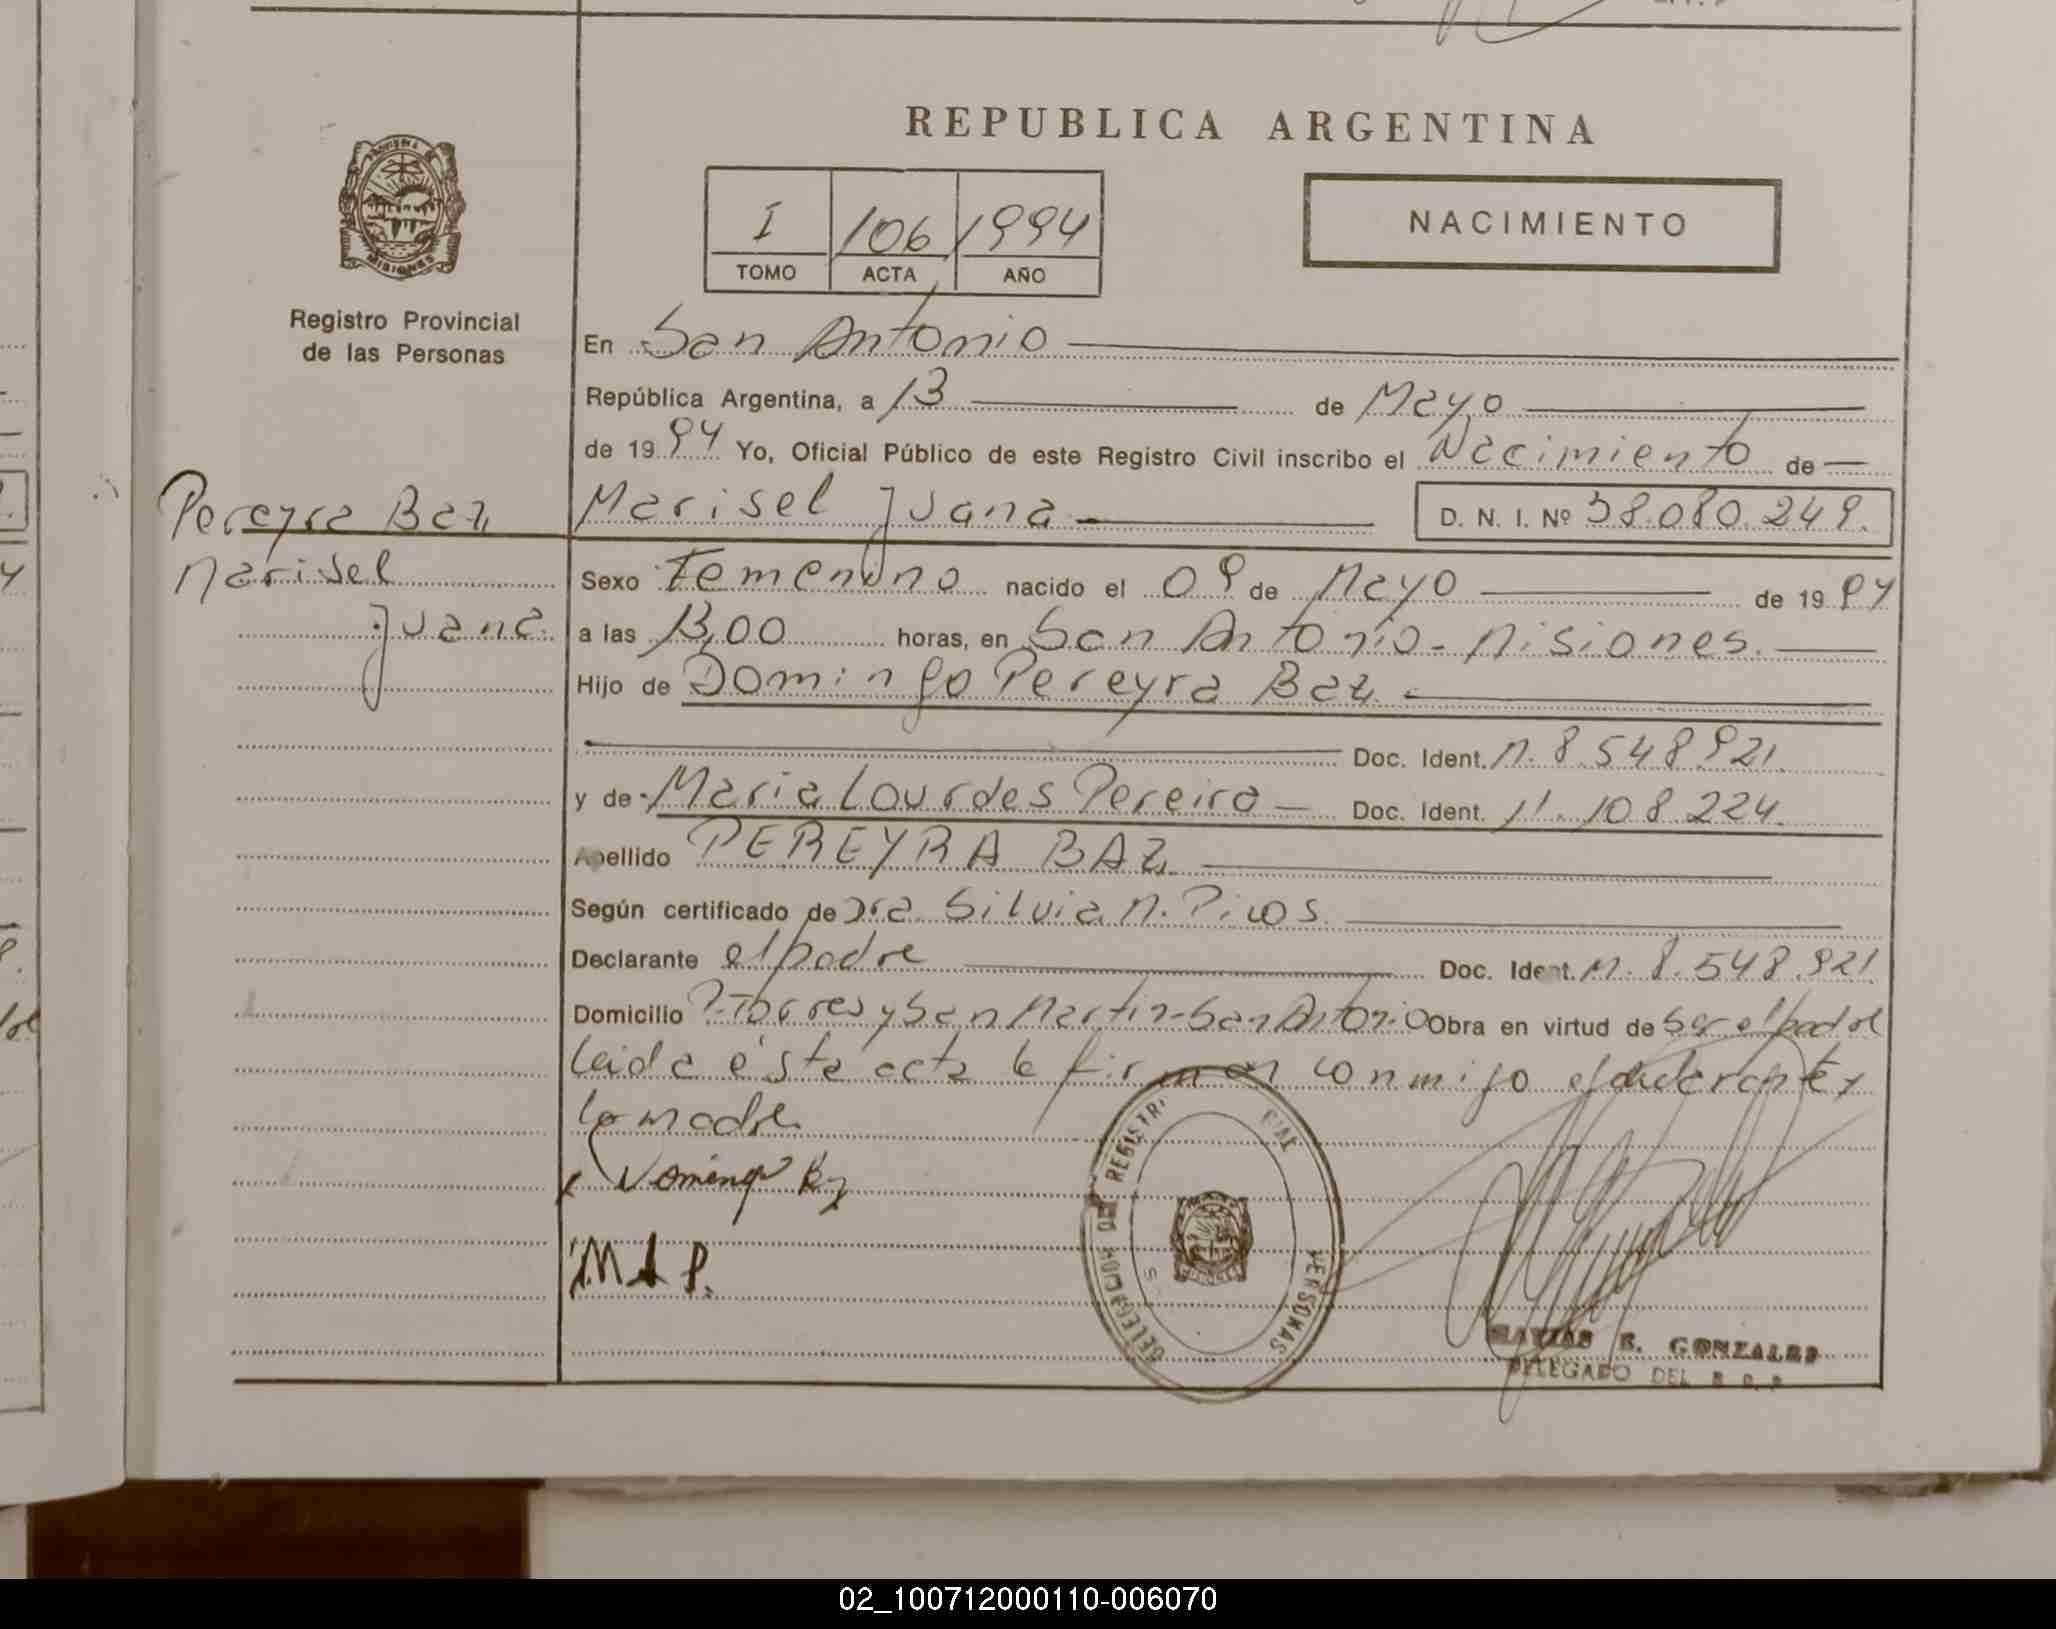 REPUBLICA ARGENTINA
I 106 1994
TOMO ACTA AÑO
NACIMIENTO
PROVINCIA DE
MISIONES
Registro Provincial
de las Personas
Pereyra Baz
Marisel
Juana
En San Antonio
República Argentina, a 13 de Mayo
de 1994 Yo, Oficial Público de este Registro Civil inscribo el Nacimiento de
Marisel Juana D. N. I. Nº 38.080.249.
Sexo Femenino nacido el 09 de Mayo de 1994
a las 13,00 horas, en San Antonio - Misiones.
Hijo de Domingo Pereyra Baz
Doc. Ident. M. 8.548.921.
y de Maria Lourdes Pereira Doc. Ident. 11.108.224.
Apellido PEREYRA BAZ
Según certificado de Dra Silvia M. Picos
Declarante el padre Doc. Ident. M. 8.548.921
Domicilio P. Torres y San Martin - San Antonio Obra en virtud de ser el padre
Leida ésta acta la firman conmigo el declarante y
la madre
x Domingo Bz
M L P.
DELEGACION DEL REGISTR CIAL PERSONAS
MATIAS E. GONZALES
DELEGADO DEL R P P
02_100712000110-006070